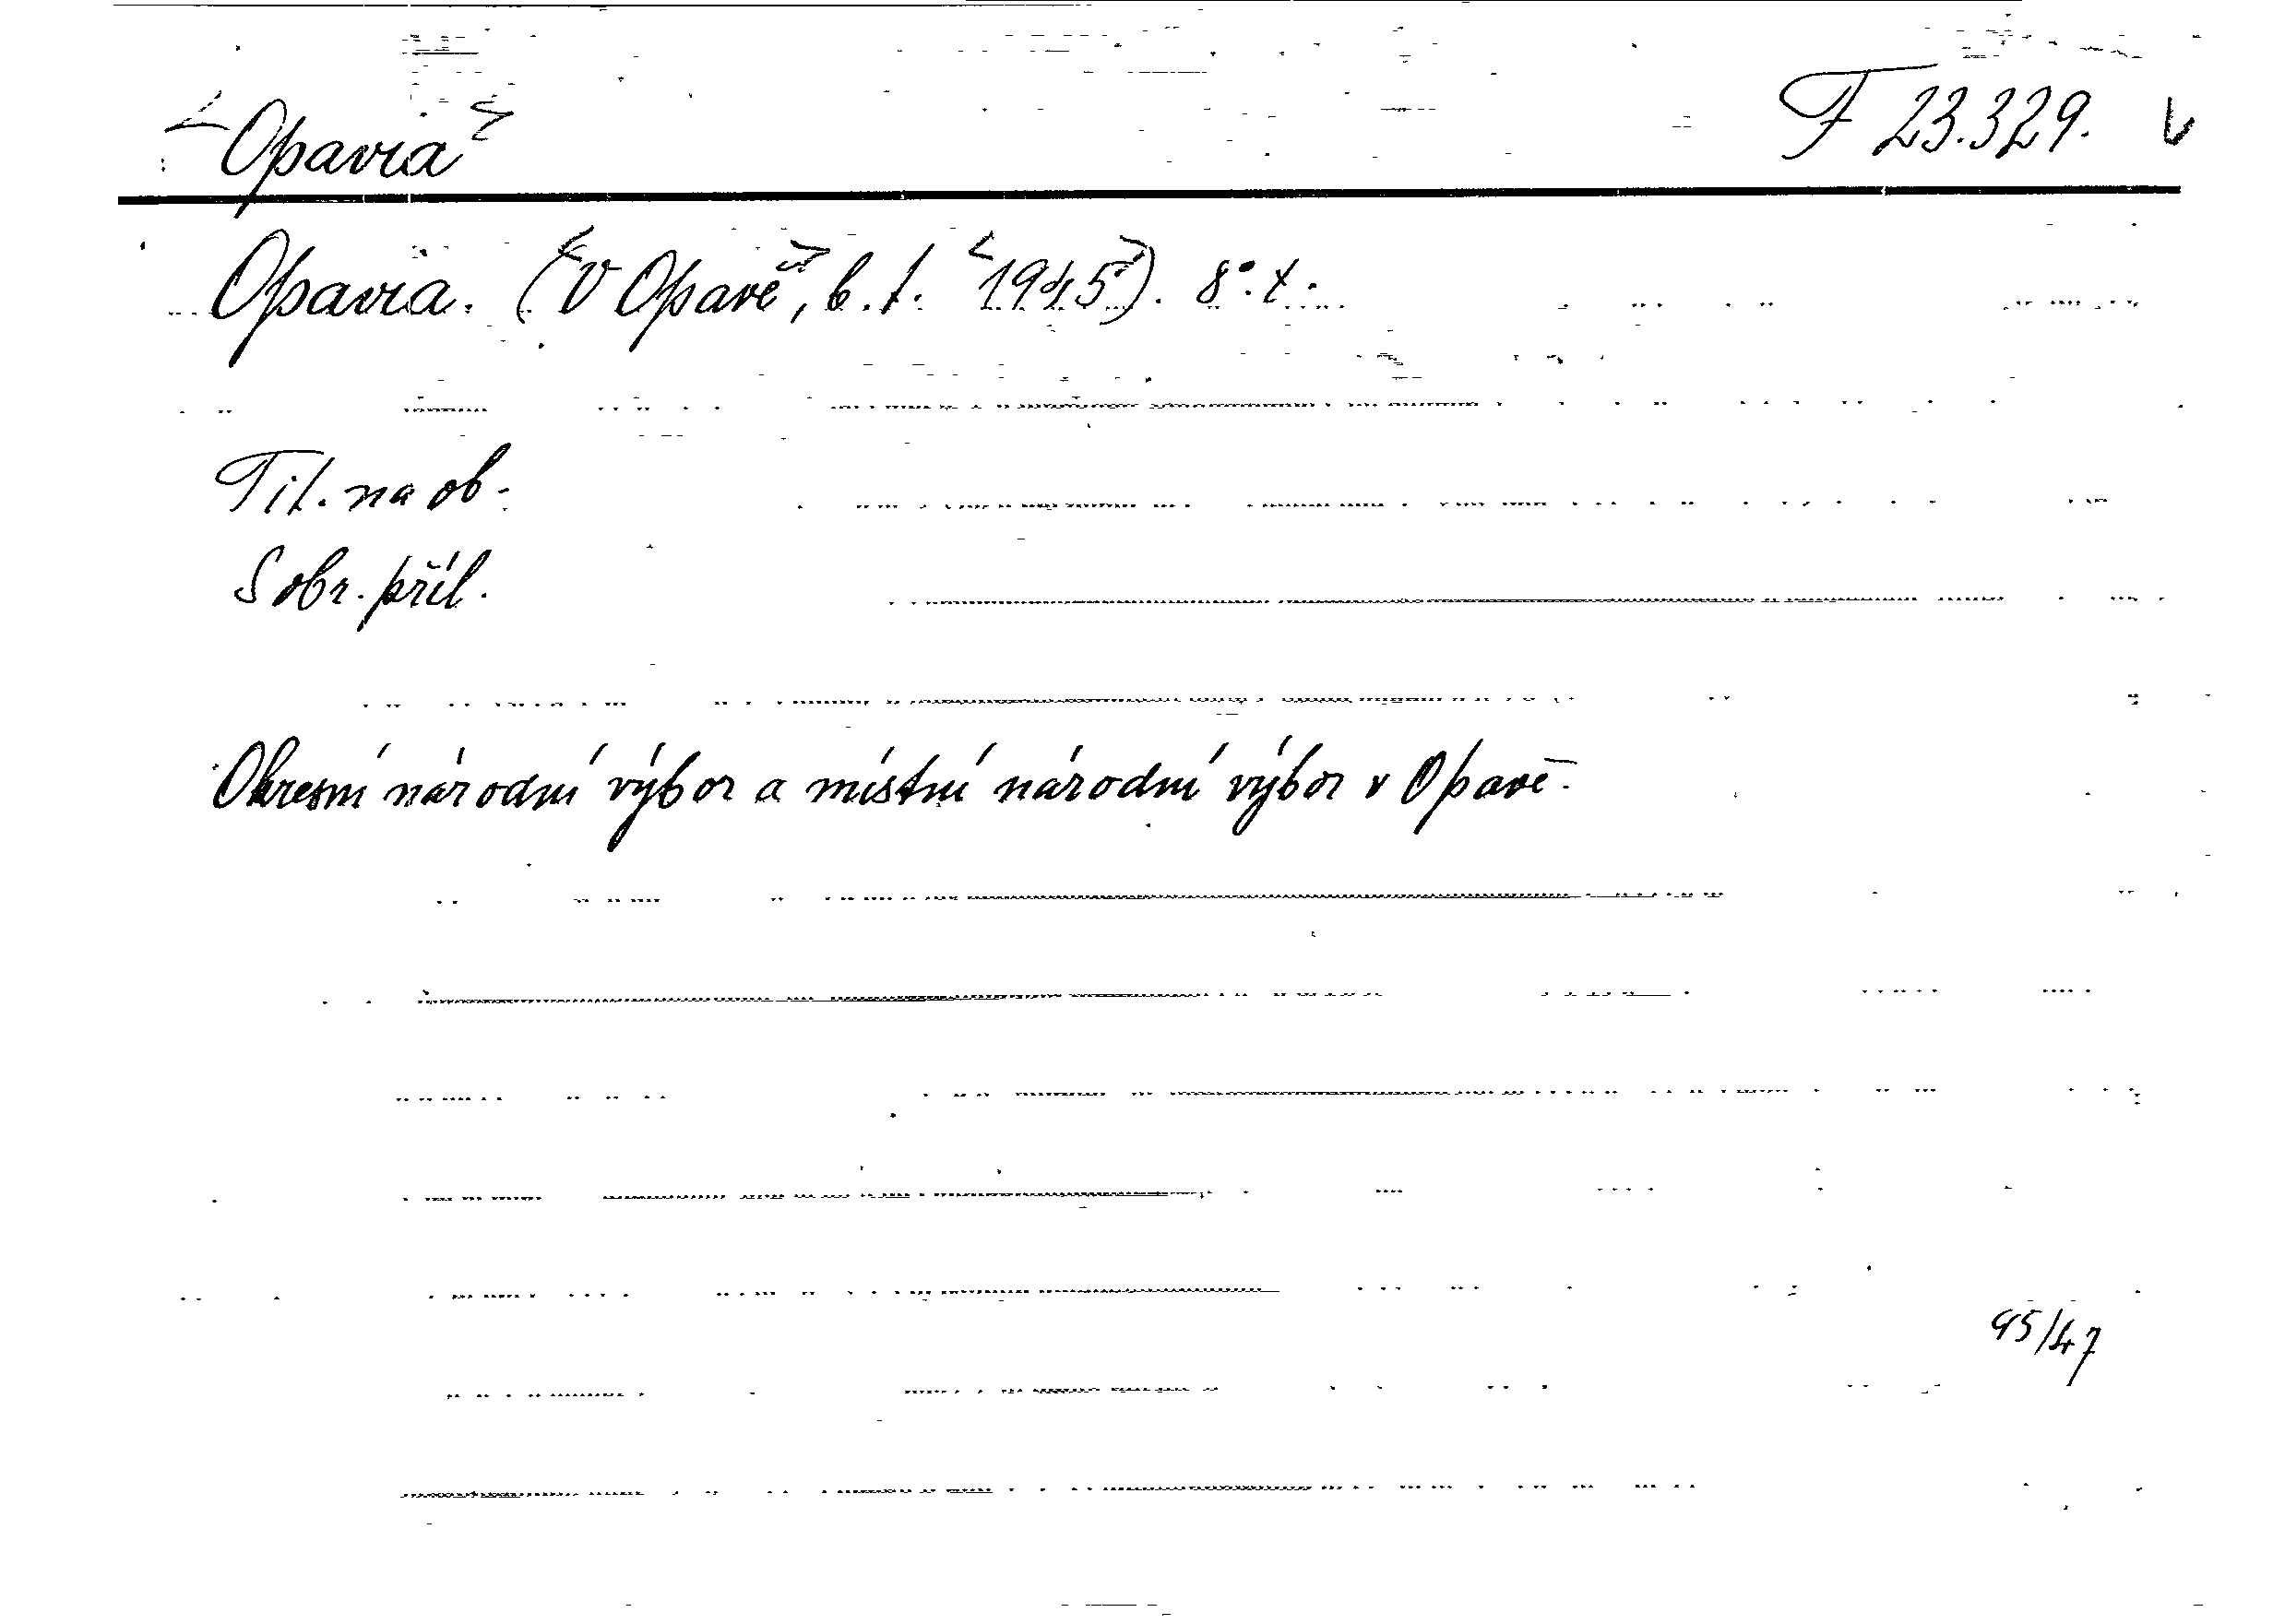 Opavia F 23.329. v
Opavia. (V Opavě, b.t. 1945). 8°. t.
Tit. na ob.
S obr. příl.
Okresní národní výbor a místní národní výbor v Opavě.
45/47